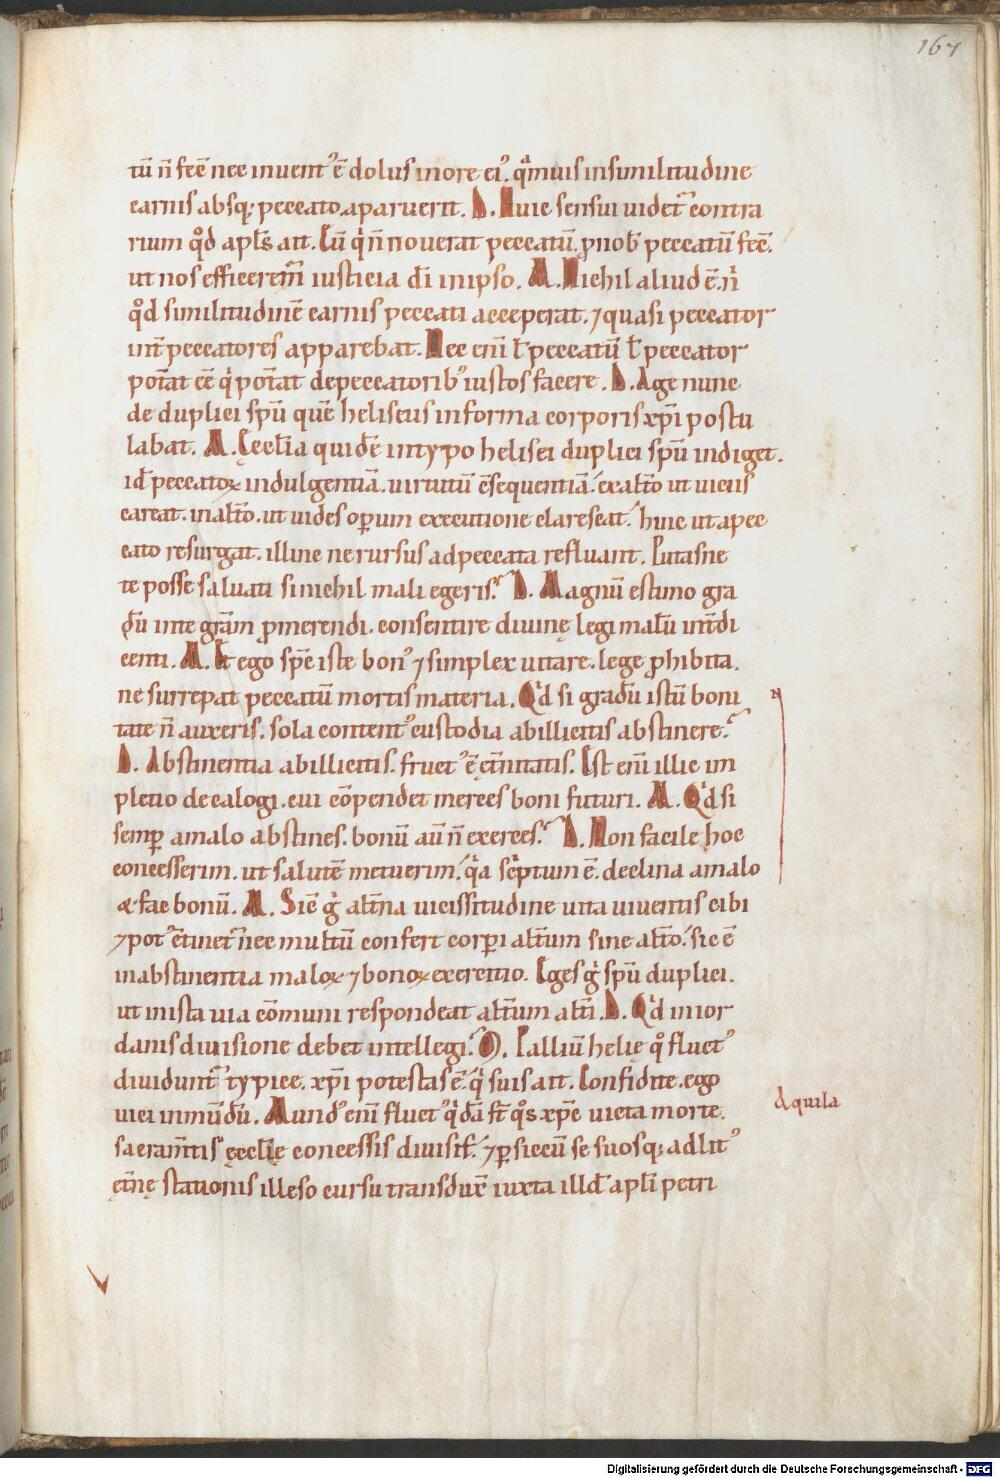 167
tū n̄ fec̄ nec inuent᾿ ē dolus inore ei᾿. q̄muis insimilitudine
carnis absq; peccato aparuerit. D. Huic sensui uidet᷑ contra
rium qd̓ apl̄s ait. Cū q̓ n̄ nouerat peccatū, ꝓ nob̄ peccatū fec̄.
ut nos efficerem̄ iusticia dī inipso. A. Nichil aliud ē. n̓
qd̓ similitudinē carnis peccati acceperat. ⁊ quasi peccator
int̄ peccatores apparebat. Nec enī t̄ peccatū t̄ peccator
potāt eē q̓ potāt depeccatorib᾿ iustos facere. D. Age nunc
de duplici sp̄u quē heliseus informa corporis xp̄i postu
labat. A. Ęccl̄ia quidē intypo helisei duplici sp̄u indiget.
id̄ peccatoꝝ indulgentiā. uirtutū ēsequentiā. exalt̄o ut uiciis
careat. inalt̄o. ut uides oꝑum executione clarescat. hinc ut apec
cato resurgat. illinc ne rursus adpeccata refluant. Putasne
te posse saluari si nichil mali egeris. D. Magnū estimo gra
dū inte gram̄ ꝓmerendi. consentire diuinę legi malū int̄di
centi. A. Et ego spē iste bon᾿ ⁊ simplex uitare. lege ꝓhibita.
ne surrepat peccatū mortis materia. Qd̓ si gradū istū boni
tate n̄ auxeris. sola content᾿ custodia abillicitis abstinere.
D. Abstinentia abillicitis. fruct᾿ ē ęt̄nitatis. Est enī illic im
pletio decalogi. cui cōpendet merces boni futuri. A. Qd̓ si
semꝑ amalo abstines. bonū aū n̄ exerces. D. Non facile hoc
concesserim. ut salutē metuerim. q̓a sc̓ptum ē. declina amalo
& fac bonū. A. Sic̄ g̓ alt̄na uicissitudine uita uiuentis cibi
⁊ pot᾿ c̄tinet᷑ nec multū confert corꝑi alt̄um sine alt̄o. sic ē
inabstinentia maloꝝ ⁊ bonoꝝ exercitio. Eges g̓ sp̄u duplici.
ut inista uia cōmuni respondeat alt̄um alt̄i. D. Qd̓ inior
danis diuisione debet intellegi. O. Palliū helię q̓ fluct᾿
diuidunt᷑ typice. xp̄i potestas ē. q̓ suis ait. Confidite. ego
uici inmūdū. Aund᾿ enī fluct᾿ q̓dā st̄ q̓s xp̄c uicta morte.
sacram̄tis ęccl̄ię concessis diuisit. ⁊ ꝑ siccū se suosq; ad lit᾿
ęt̄nę stationis illeso cursu transdux̄ iuxta illd̄ apl̄i petri
Aquila